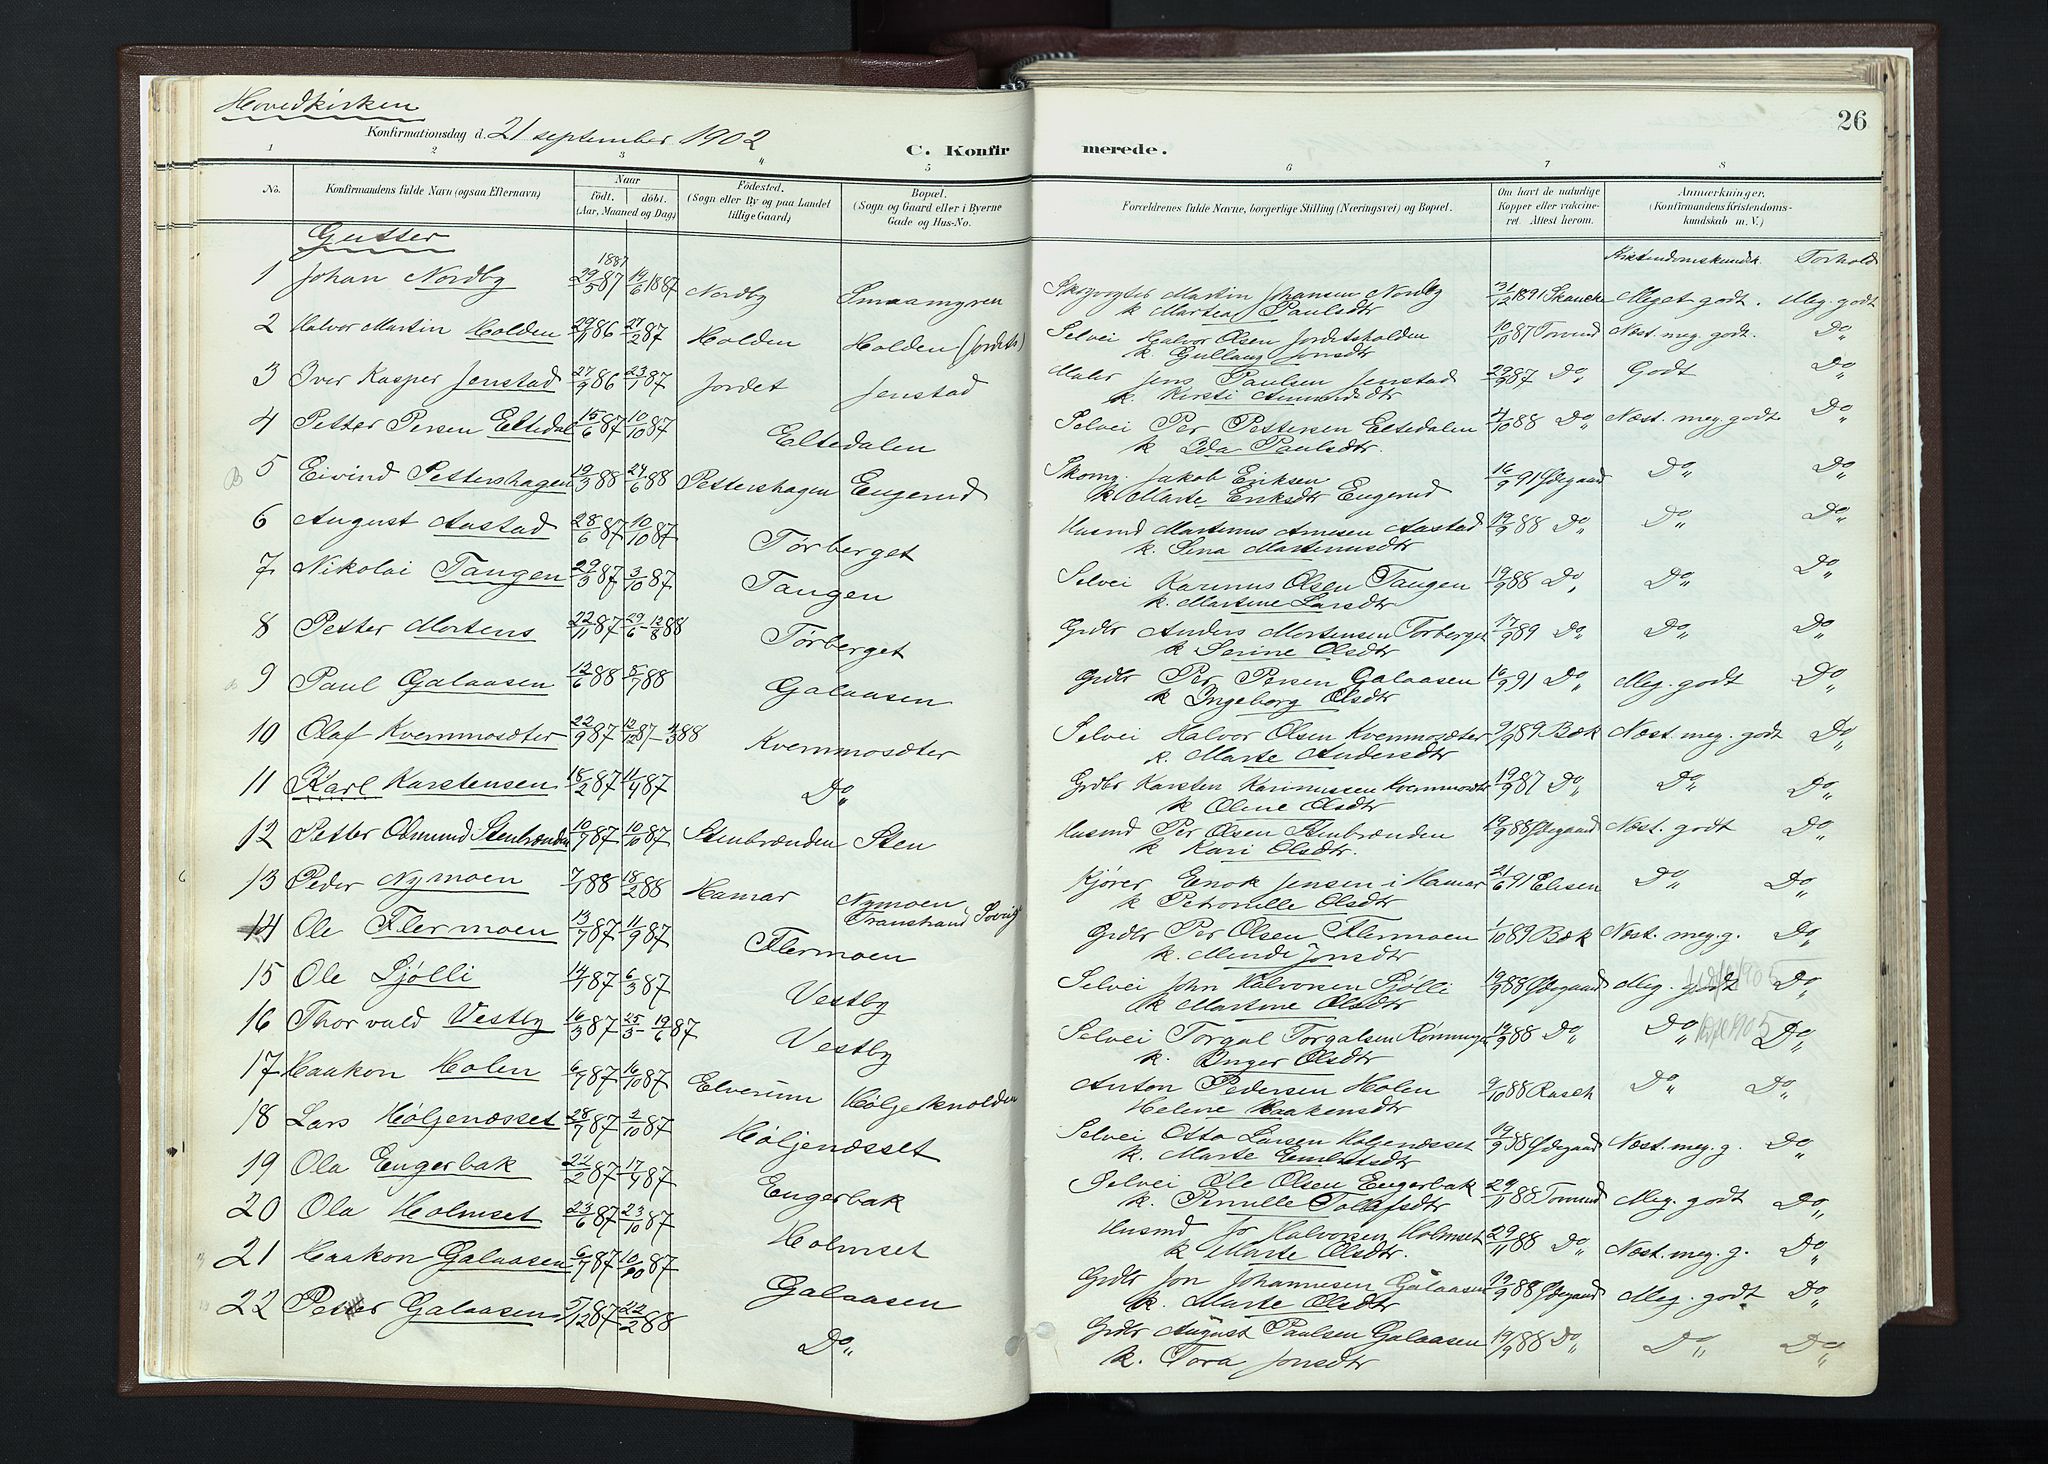 Hovedkirken
Konfirmationsdag d. 21 september 1902
C. Konfirmerede.
26
1 2 3 5 6 7 8
No.
Konfirmandens fulde Navn (ogsaa Efternavn)
Naar
födt. döbt.
(Aar, Maaned og Dag)
Födested.
(Sogn eller By og paa Landet
tillige Gaard)
Bopæl.
(Sogn og Gaard eller i Byerne
Gade og Hus-No.
Forældrenes fulde Navne, borgerlige Stilling (Næringsvei) og Bopæl.
Om havt de naturlige
Kopper eller vakcine-
ret Attest herom.
Anmærkninger.
(Konfirmandens Kristendoms-
kundskab m. V.)
Gutter
Kristendomskundsk. Forhold
1 Johan Nordby 1887 29/5 87 19/6 1887 Nordby Smaamyren Martin Johansen Nordby 31/12 1891 Skancke Meget godt. Meg. godt
k Martea Paulsdtr
2 Halvor Martin Holden 29/11 86 27/2 87 Holden Holden (Jordets) Selvei Halvor Olsen Jordetsholden 10/10 87 Tomud Næst. meg. godt. Do
k Gullaug Jonsdtr
3 Iver Kasper Jenstad 27/9 86 23/1 87 Jordet Jenstad Maler Jens Paulsen Jenstad 29/9 87 Do Godt Do
k. Kirsti Amundsdtr
4 Petter Persen Eltedal 15/6 87 10/10 87 Eltedalen Selvei Per Pettersen Eltedalen 4/10 88 Do Næst. meg. godt Do
k Ida Paulsdtr.
5 Eivind Pettershagen 19/3 88 24/6 88 Pettershagen Engerud Skomg. Jakob Eriksen 16/9 91 Ødegaard Do Do
k Marte Eriksdtr Engerud
6 August Aastad 28/6 87 10/10 87 Törberget Husmd Martinus Arnesen Aastad 19/9 88 Do Do Do
k. Lina Martinusdtr
7 Nikolai Tangen 29/5 87 3/10 87 Tangen Selvei Karinus Olsen Tangen 19/9 88 Do Do Do
k. Martine Larsdtr
8 Petter Mortens 22/11 87 29/6 - 12/8 88 Törberget Grdbr Anders Mortensen Törberget 17/9 89 Do Do Do
k Serine Olsdtr
9 Paul Galaasen 12/6 88 8/7 88 Galaasen Grdbr Per Persen Galaasen 16/9 91 Do Meg. godt Do
k Ingeborg Olsdtr
10 Olaf Kvernmosæter 22/9 87 12/12 87 - 4/3 88 Kvernmosæter Selvei Halvor Olsen Kvernmosæter 9/9 89 Bæk Næst. meg. godt Do
k. Marte Andersdtr
11 Karl Karstensen 18/2 87 11/4 87 Do Grdbr Karsten Karinussen Kvernmosæter 19/9 87 Do Do Do
k Oline Olsdtr
12 Petter Odmund Stenbrænden 10/9 87 10/10 87 Stenbrænden Sten Husmd Per Olsen Stenbrænden 19/9 88 Ødegaard Næst. godt Do
k Kari Olsdtr.
13 Peder Nymoen 7/1 88 18/2 88 Hamar Nymoen, Kjörer Enok Jensen i Hamar 21/6 91 Elisen Do Do
Transtrand Sverig k Petronille Olsdtr
14 Ole Flermoen 13/7 87 11/9 87 Flermoen Grdbr Per Olsen Flermoen 1/10 89 Bæk Næst. meg. g. Do
k. Mindi Jonsdtr
15 Ole Sjölli 14/1 87 6/3 87 Vestby Selvei John Halvorsen Sjölli 19/9 88 Ødegaard Meg. godt Do
k Martine Olsdtr
16 Thorvald Vestby 16/3 87 25/3 - 19/6 87 Vestby Selvei Torgal Torgalsen Rönningen 19/9 88 Do Do Do
k. Inger Olsdtr
17 Haakon Holen 6/9 87 16/10 87 Elverum Höljeknolden Anton Pedersen Holen 9/10 88 Rasch Do Do
Helene Haakensdtr
18 Lars Höljenæsset 28/7 87 2/10 87 Höljenæsset Selvei Otto Larsen Höljenæsset 19/9 88 Ødegaard Næst. meg. g. Do
k. Marte
19 Ola Engerbak 22/2 87 17/4 87 Engerbak Selvei Ole Olsen Engerbak 29/11 88 Tomud Meg. godt Do
k. Pernille Tollefsdtr
20 Ola Holmset 23/6 87 23/10 87 Holmset Husmd Jo Halvorsen Holmset 29/11 88 Do Næst. meg. g. Do
k Marte Olsdtr.
21 Haakon Galaasen 6/7 87 10/10 87 Galaasen Grdbr Jon Johannesen Galaasen 19/9 88 Ødegaard Meg. godt Do
k. Marte Olsdtr
22 Petter Galaasen 5/12 87 22/2 88 Do Grdbr August Paulsen Galaasen 19/9 88 Do Do Do
k. Tora Jonsdtr